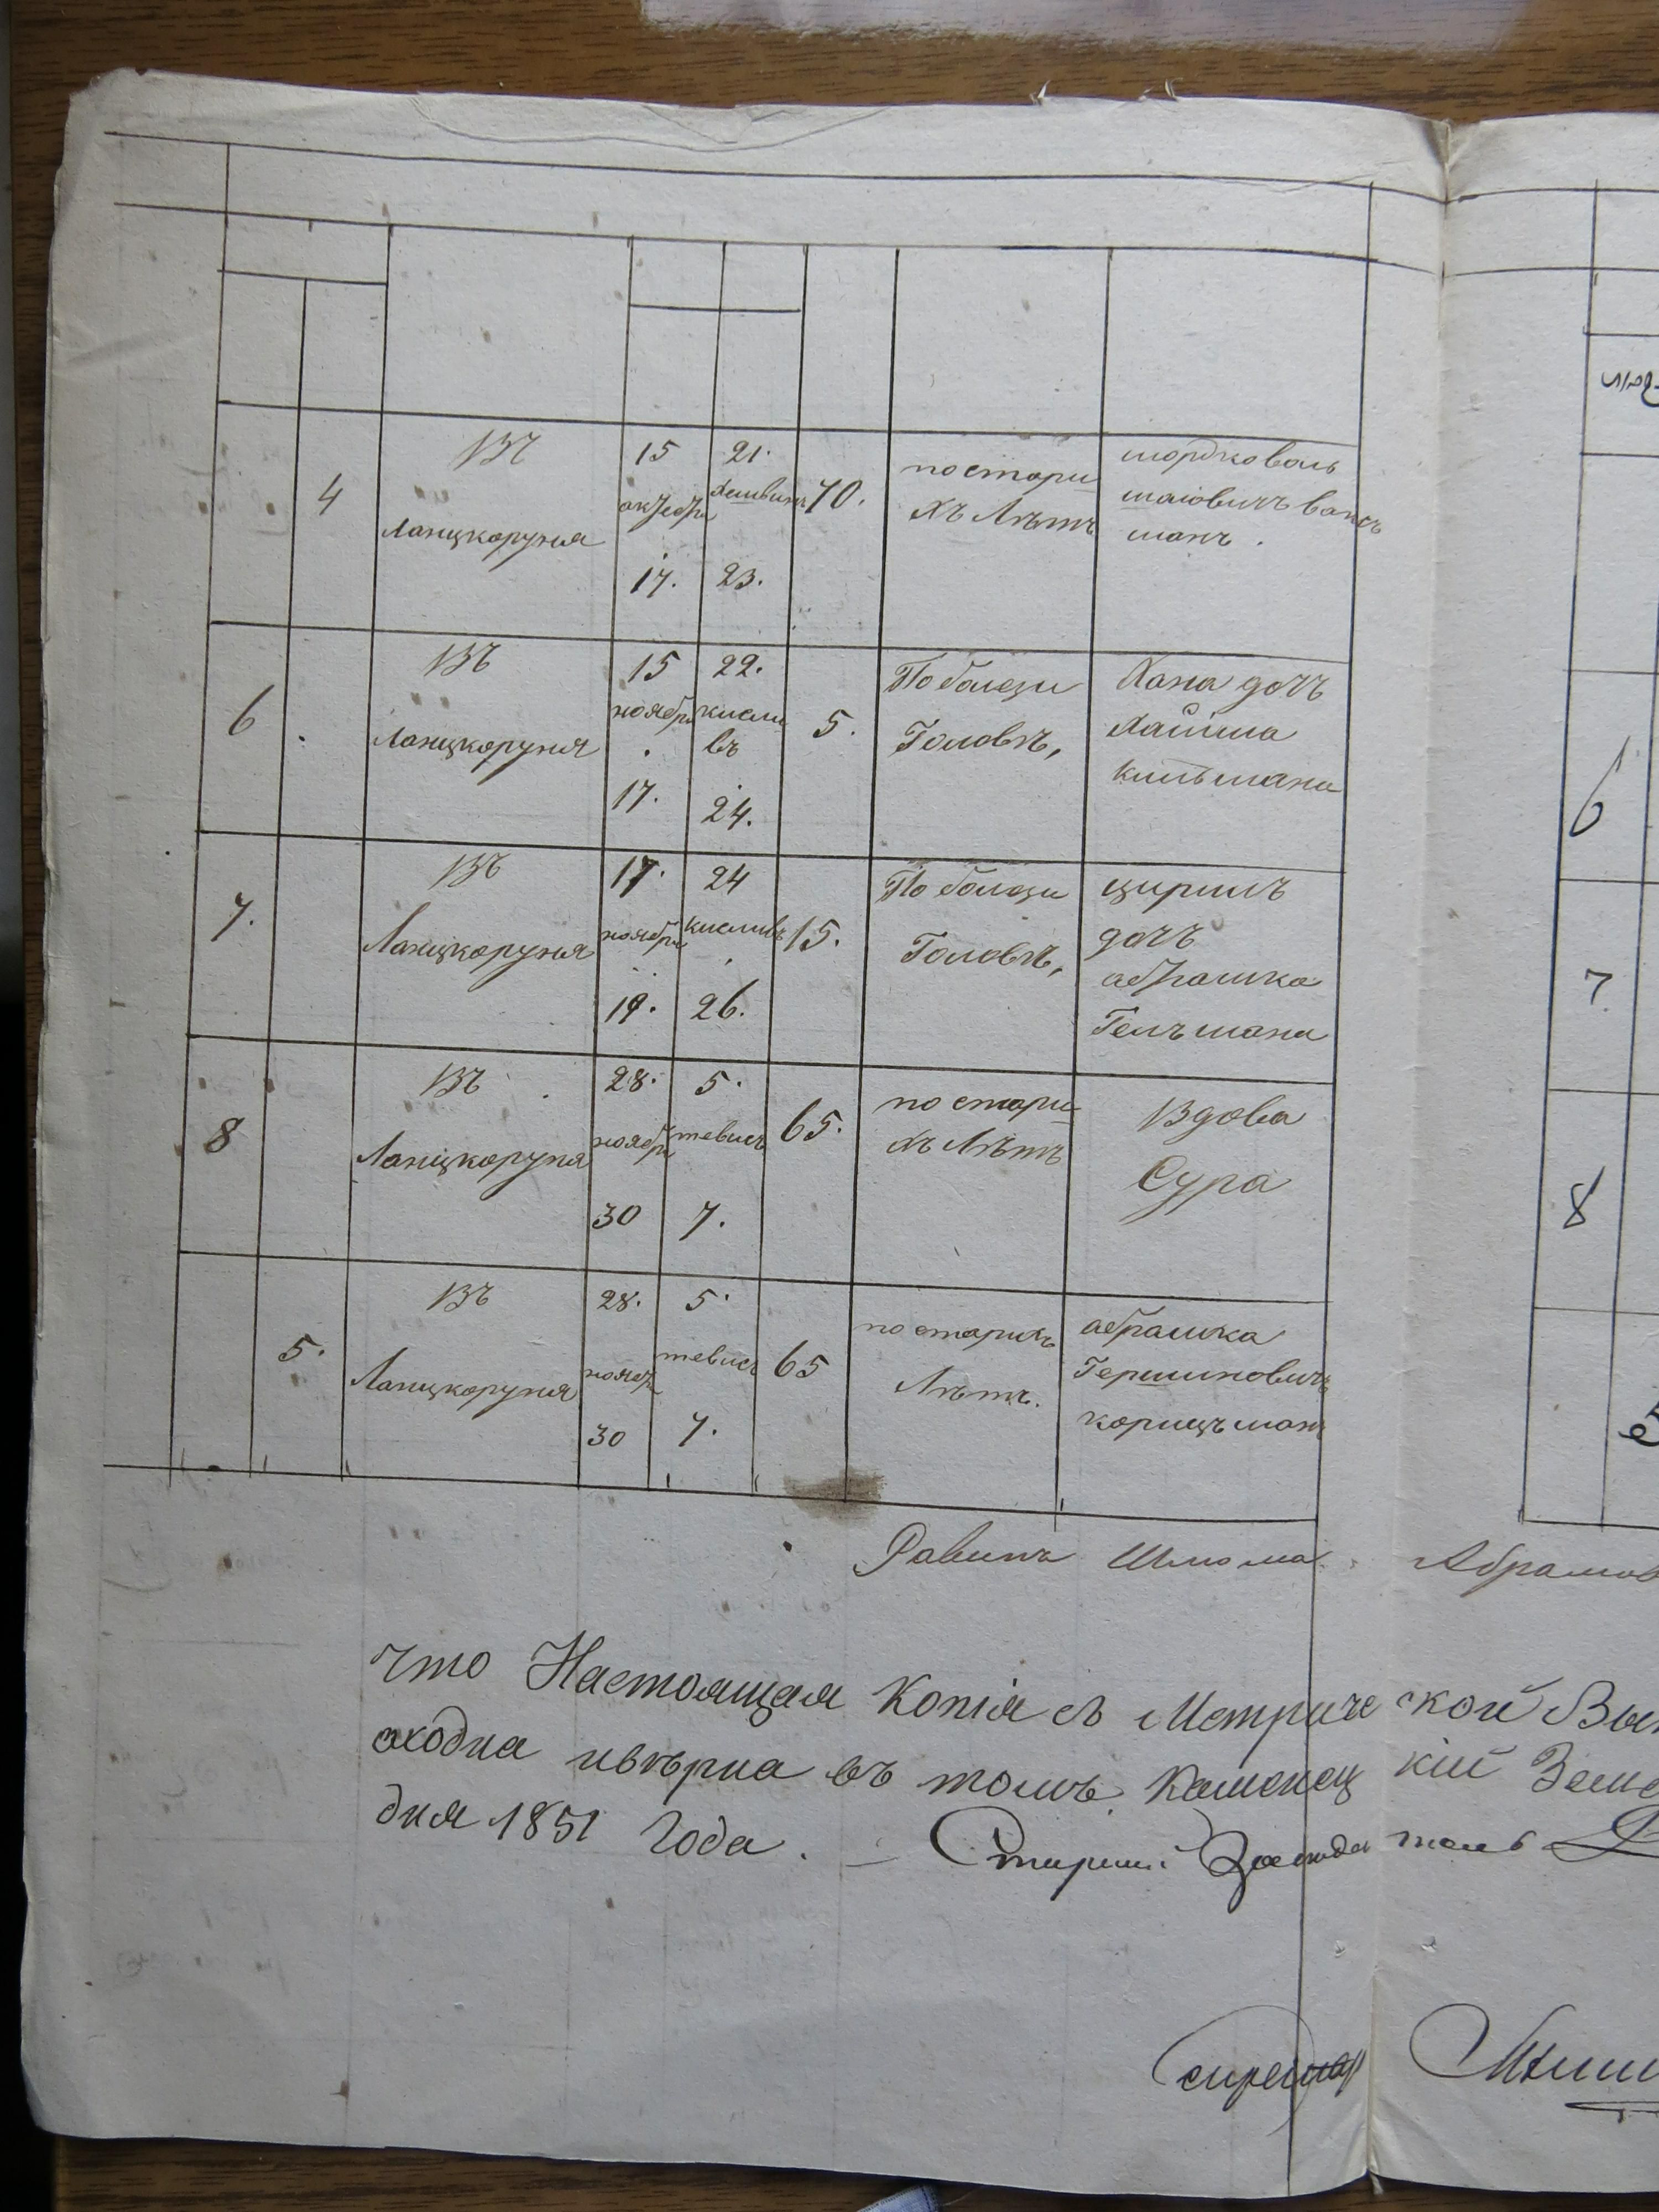 4
въ
Ланцкоруня
15
октебри
17.
21.
хешвинъ
23.
70.
по стари
хъ Лѣтъ
мордко воль
маювичъ
манъ.
6
въ
Ланцкоруня
15
ноябри
17.
22.
кисли
въ
24.
5.
По болези
Головъ,
Хана дочъ
Хаима
китьмана
7.
въ
Ланцкоруня
17.
ноябри
19.
24
кисливъ
26.
15.
По болези
Головъ,
цирилъ
дочъ
абрамка
Гелъмана
8
въ
Ланцкоруня
28.
ноябри
30
5.
тевисъ
7.
65.
по стари
хъ Лѣтъ
Вдова
Сура
5.
въ
Ланцкоруня
28.
ноябри
30
5.
тевисъ
7.
65
по старихъ
Лѣтъ.
абрамка
Гершиновичъ
корицъманъ
6
7
8
5
Равинъ Шлома Абрамов
что Настоящая Копія съ Метриче ской Вып
сходна и вѣрна въ томъ Каменец кій Земс
дня 1851 Года. – Старший Заседа тель